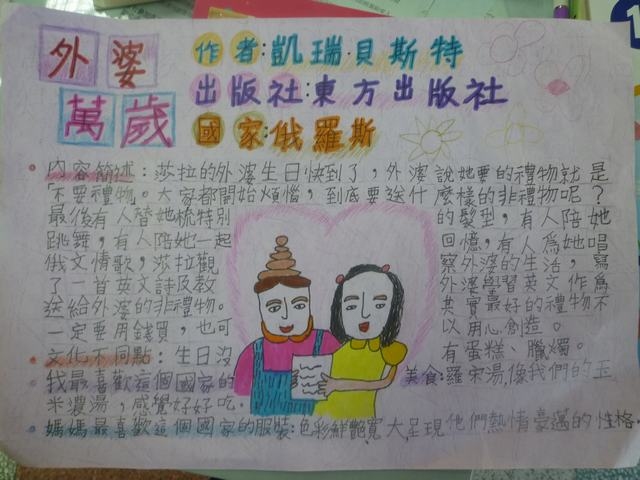 外婆萬歲
作者:凱瑞·貝斯特
出版社:東方出版社
國家:俄羅斯
內容簡述:莎拉的外婆生日快到了,外婆說她要的禮物就是
「不要禮物。大家都開始煩惱,到底要送什麼樣的非禮物呢?
最後有人替她梳特別的髮型,有人陪她
跳舞,有人陪她一起回憶,有人為她唱
俄文情歌,莎拉觀察外婆的生活,寫
了一首英文詩及教外婆學習英文作為
送給外婆的非禮物。其實最好的禮物不
一定要用錢買,也可以用心創造。
文化不同點:生日沒有蛋糕、臘燭。
我最喜歡這個國家的美食:羅宋湯,像我們的玉
米濃湯,感覺好好吃.
媽媽最喜歡這個國家的服裝:色彩鮮艷寬大呈現他們熱情豪邁的性格.